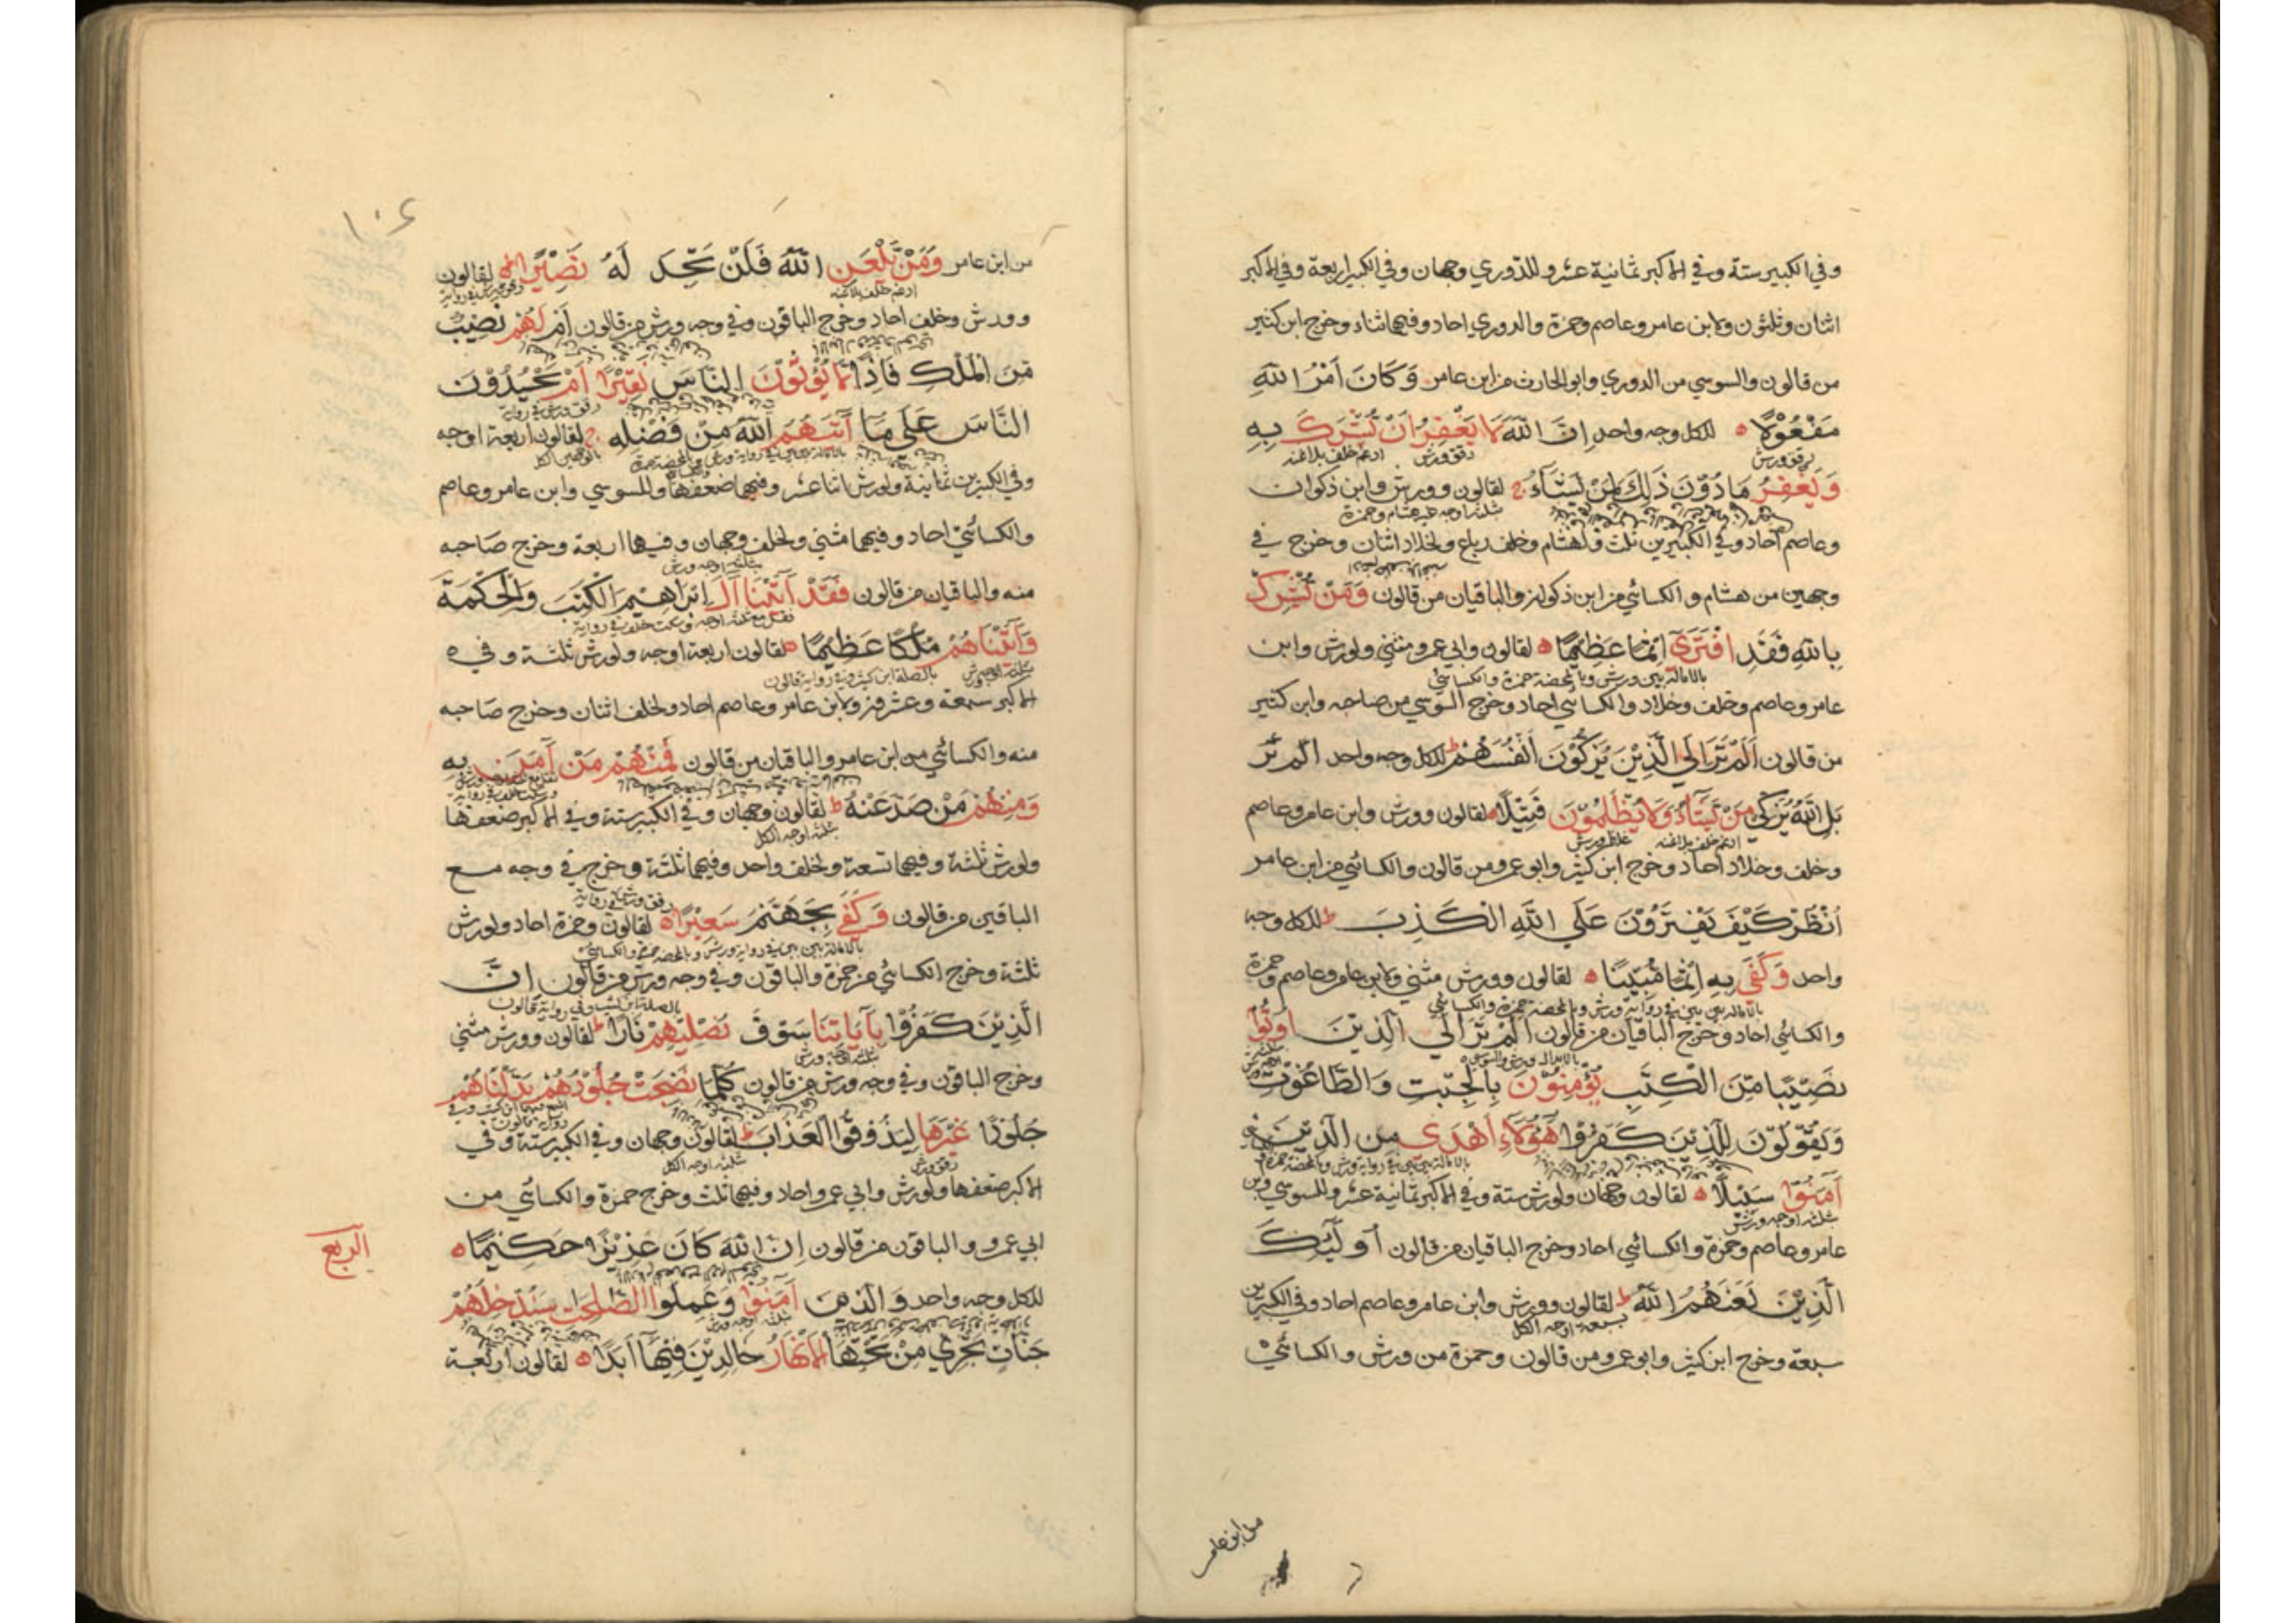 وفي الكبير ستة وفي الاكبر ثمانية عشر وللدوري وجهان وفي الكبير اربعة وفي الاكبر
اثنان وثلثون ولابن عامر وعاصم وحمزة والدوري احاد وفيهما ثناء وخرج ابن كثير
من قالون والسوسي من الدوري وابو الحارث من ابن عامر وَكَانَ اَمْرُ اللّٰهِ
مَفْعُوْلًا ه للكل وجه واحد اِنَّ اللّٰهَ لَا يَغْفِرُ اَنْ يُشْرَكَ بِهِ
رقق ورش ادغم خلف بلاغنه
وَيَغْفِرُ مَا دُوْنَ ذَلِكَ لِمَنْ يَشَاءُ ج لقالون وورش وابن ذكوان
وعاصم احاد وفي الكبيرين ثلث ولهشام وخلف رباع ولخلاد اثنان وخرج في
وجهين من هشام والكسائي من ابن ذكوان والباقيان من قالون وَمَنْ يُشْرِكْ
بِاللّٰهِ فَقَدِ افْتَرَى اِثْمًا عَظِيْمًا ه لقالون وابي عمرو مثنى ولورش وابن
بالامالة بين بين ورش وبالمحضة حمزة والكسائي
عامر وعاصم وخلف وخلاد والكسائي احاد وخرج السوسي من صاحبه وابن كثير
من قالون اَلَمْ تَرَ اِلَى الَّذِيْنَ يُزَكُّوْنَ اَنْفُسَهُمْ ط للكل وجه واحد الم تر
بَلِ اللّٰهُ يُزَكِّي مَنْ يَشَاءُ وَلَا يُظْلَمُوْنَ فَتِيْلًا ه لقالون وورش وابن عامر وعاصم
ادغم خلف بلاغنه غلظ ورش
وخلف وخلاد احاد وخرج ابن كثير وابو عمرو من قالون والكسائي من ابن عامر
اُنْظُرْ كَيْفَ يَفْتَرُوْنَ عَلَى اللّٰهِ الْكَذِبَ ط للكل وجه
واحد وَكَفَى بِهِ اِثْمًا مُبِيْنًا ه لقالون وورش مثنى ولابن عامر وعاصم وحمزة
بالامالة بين بين في رواية ورش وبالمحضة حمزة والكسائي
والكسائي احاد وخرج الباقيان من قالون اَلَمْ تَرَ اِلَى الَّذِيْنَ اُوْتُوْا
بالابدال ورش والسوسي
نَصِيْبًا مِّنَ الْكِتٰبِ يُؤْمِنُوْنَ بِالْجِبْتِ وَالطَّاغُوْتِ
وَيَقُوْلُوْنَ لِلَّذِيْنَ كَفَرُوْا هٰؤُلَاءِ اَهْدَى مِنَ الَّذِيْنَ
بالامالة بين بين في رواية ورش وبالمحضة حمزة
اٰمَنُوْا سَبِيْلًا ه لقالون وجهان ولورش ستة وفي الاكبر ثمانية عشر وللسوسي وابن
ثلثة اوجه ورش
عامر وعاصم وحمزة والكسائي احاد وخرج الباقيان من قالون اُولٰئِكَ
الَّذِيْنَ لَعَنَهُمُ اللّٰهُ ط لقالون وورش وابن عامر وعاصم احاد وفي الكبيرين
سبعة اوجه الكل
سبعة وخرج ابن كثير وابو عمرو من قالون وحمزة من ورش والكسائي
من ابن عامر
١٠٤
من ابن عامر وَمَنْ يَّلْعَنِ اللّٰهُ فَلَنْ تَجِدَ لَهُ نَصِيْرًا ه لقالون
ادغم خلف بلاغنه
وورش وخلف احاد وخرج الباقون وفي وجه ورش من قالون اَمْ لَهُمْ نَصِيْبٌ
مِّنَ الْمُلْكِ فَاِذًا لَا يُؤْتُوْنَ النَّاسَ نَقِيْرًا اَمْ يَحْسُدُوْنَ
رقق ورش في رواية
النَّاسَ عَلَى مَا اٰتٰهُمُ اللّٰهُ مِنْ فَضْلِهِ ج لقالون اربعة اوجه
وفي الكبيرين ثمانية ولورش اثنا عشر وفيهما ضعفها وللسوسي وابن عامر وعاصم
والكسائي احاد وفيهما مثنى ولخلف وجهان وفيهما اربعة وخرج صاحبه
ثلثة اوجه ورش
منه والباقيان من قالون فَقَدْ اٰتَيْنَا اٰلَ اِبْرَاهِيْمَ الْكِتٰبَ وَالْحِكْمَةَ
وَاٰتَيْنَاهُمْ مُلْكًا عَظِيْمًا ه لقالون اربعة اوجه ولورش ثلثة وفي
بالصلة ابن كثير وفي رواية قالون
الاكبر سبعة وعشرون ولابن عامر وعاصم احاد ولخلف اثنان وخرج صاحبه
منه والكسائي من ابن عامر والباقيان من قالون فَمِنْهُمْ مَنْ اٰمَنَ بِهِ
وَمِنْهُمْ مَنْ صَدَّ عَنْهُ ط لقالون وجهان وفي الكبير ستة وفي الاكبر ضعفها
ثلثة اوجه الكل
ولورش ثلثة وفيهما تسعة ولخلف واحد وفيهما ثلثة وخرج في وجه مع
رقق ورش في رواية
الباقين من قالون وَكَفَى بِجَهَنَّمَ سَعِيْرًا ه لقالون وحمزة احاد ولورش
بالامالة بين بين في رواية ورش وبالمحضة حمزة والكسائي
ثلثة وخرج الكسائي من حمزة والباقون وفي وجه ورش من قالون اِنَّ
بالصلة ابن كثير وفي رواية قالون
الَّذِيْنَ كَفَرُوْا بِاٰيَاتِنَا سَوْفَ نُصْلِيْهِمْ نَارًا ط لقالون وورش مثنى
ثلثة اوجه ورش
وخرج الباقون وفي وجه ورش من قالون كُلَّمَا نَضِجَتْ جُلُوْدُهُمْ بَدَّلْنَاهُمْ
جُلُوْدًا غَيْرَهَا لِيَذُوْقُوا الْعَذَابَ ط لقالون وجهان وفي الكبير ستة وفي
رقق ورش ثلثة اوجه الكل
الاكبر ضعفها ولورش وابي عمرو احاد وفيهما ثلث وخرج حمزة والكسائي من
ابي عمرو والباقون من قالون اِنَّ اللّٰهَ كَانَ عَزِيْزًا حَكِيْمًا ه
الربع
للكل وجه واحد وَالَّذِيْنَ اٰمَنُوْا وَعَمِلُوا الصّٰلِحٰتِ سَنُدْخِلُهُمْ
ثلثة اوجه ورش
جَنَّاتٍ تَجْرِيْ مِنْ تَحْتِهَا الْاَنْهَارُ خَالِدِيْنَ فِيْهَا اَبَدًا ه لقالون اربعة